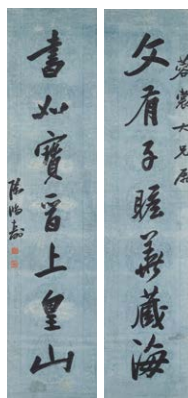 蓉裳大兄屬
文有子瞻藏海
書如寶晉上皇山
陳鴻壽